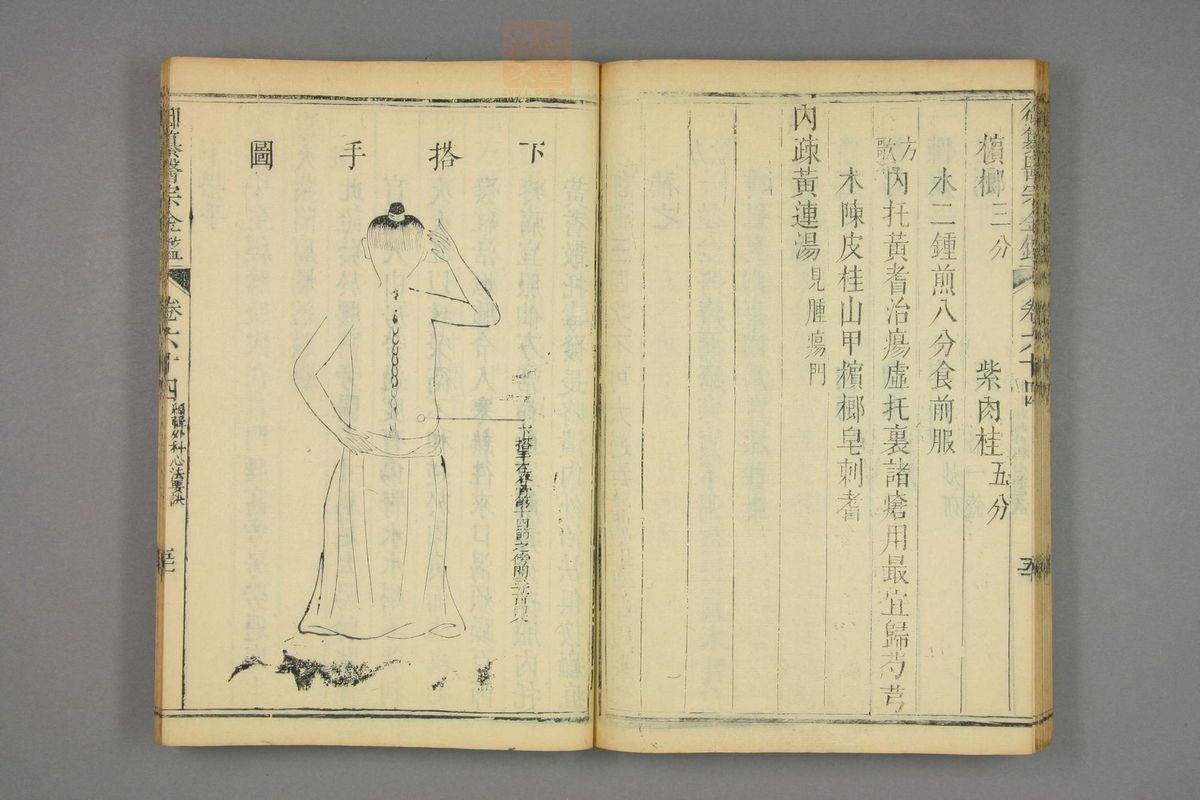 檳榔三分　紫肉桂五分
水二鍾煎八分食前服
方歌
內托黃耆治瘍虛托裏諸瘡用最宜歸芍芎
木陳皮桂山甲檳榔皂刺耆
內疎黃連湯見腫瘍門
下搭手圖
下搭手在脊骨第十四節之傍開三寸
御纂醫宗金鑑
卷六十四
編輯外科心法要訣